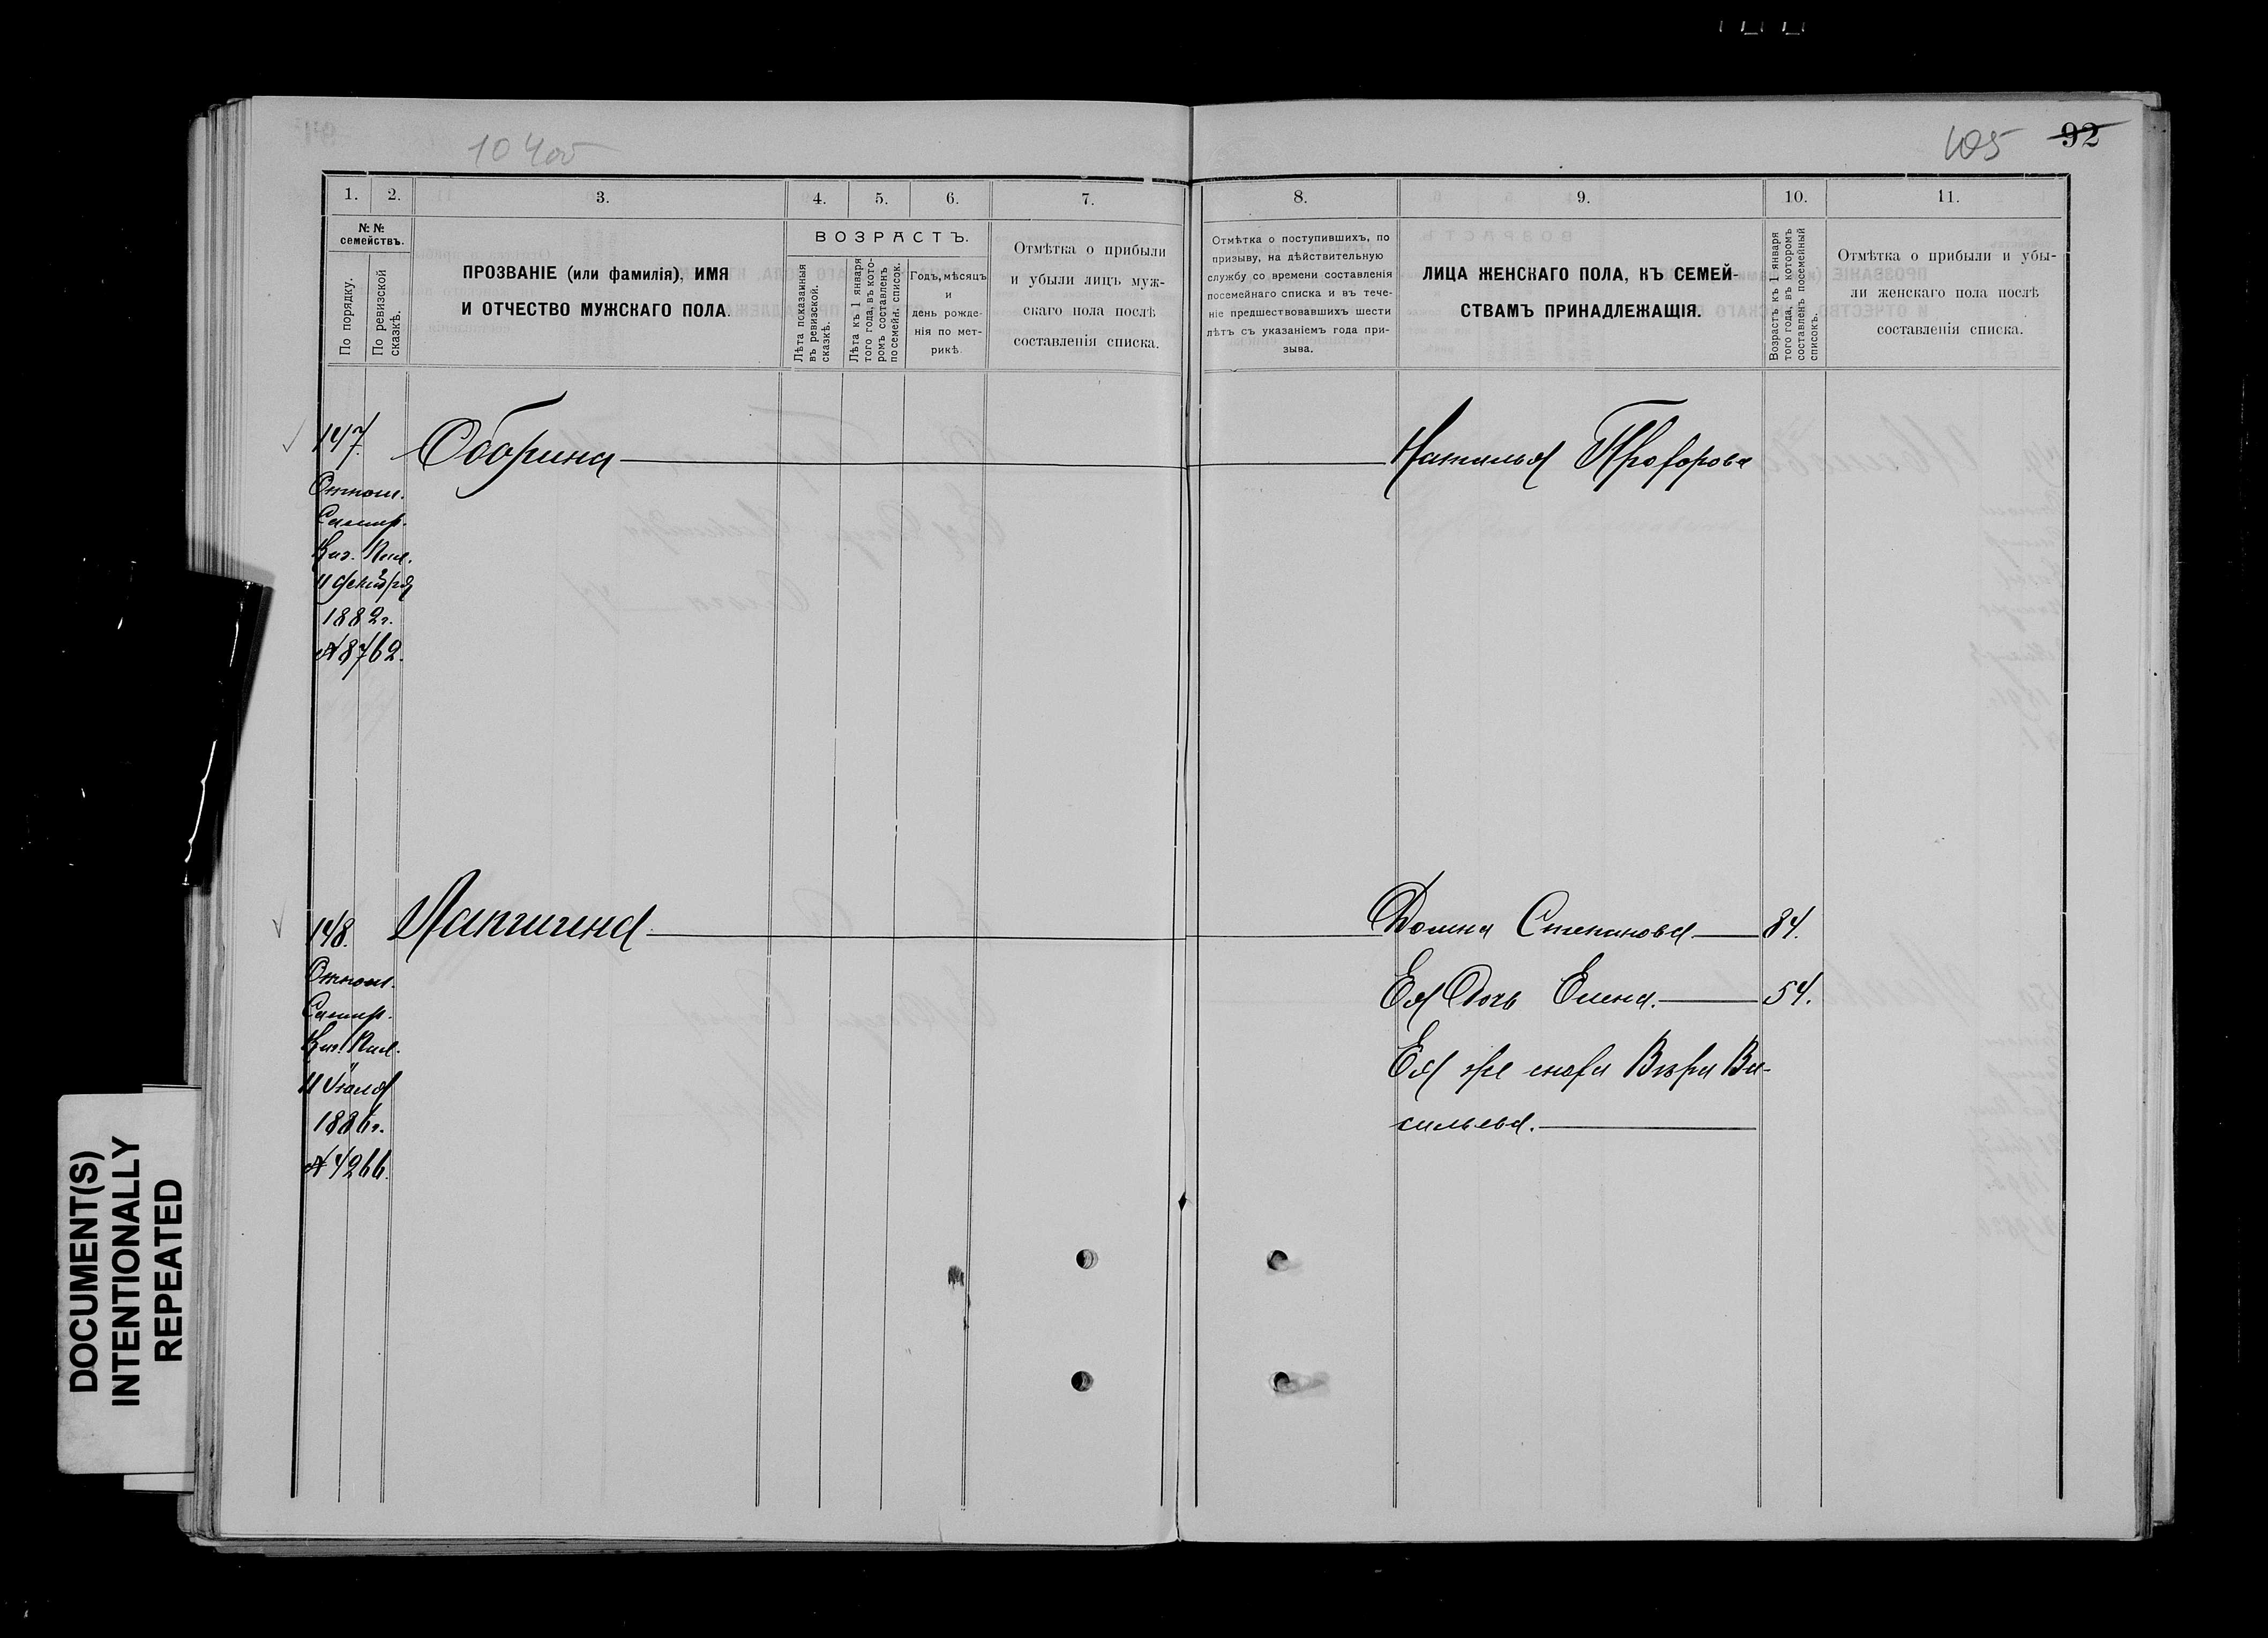 10 400
105 92
1. 2. 3. 4. 5. 6. 7. 8. 9. 10. 11.
№ № семействъ.
По порядку.
По ревизской сказкѣ.
ПРОЗВАНІЕ (или фамилія), ИМЯ
И ОТЧЕСТВО МУЖСКАГО ПОЛА.
ВОЗРАСТЪ.
Лѣта показанныя
въ ревизской.
сказкѣ.
Лѣта къ 1 января
того года, въ кото-
ромъ составленъ
посемейн. список.
Годъ, мѣсяцъ
и
день рожде-
нія по мет-
рикѣ.
Отмѣтка о прибыли
и убыли лицъ муж-
скаго пола послѣ
составленія списка.
Отмѣтка о поступившихъ, по
призыву, на дѣйствительную
службу со времени составленія
посемейнаго списка и въ тече-
ніе предшествовавшихъ шести
лѣтъ съ указаніемъ года при-
зыва.
ЛИЦА ЖЕНСКАГО ПОЛА, КЪ СЕМЕЙ-
СТВАМЪ ПРИНАДЛЕЖАЩІЯ.
Возрастъ къ 1 января
того года, въ которомъ
составленъ посемейный
списокъ.
Отмѣтка о прибыли и убы-
ли женскаго пола послѣ
составленія списка.
147. Оборина Наталья Прохорова
Отнош.
Самар.
Каз. Пал.
11
1882 г.
№ 8762.
148. Лапшина Домна Степанова 84.
Отнош.
Самар.
Каз. Пал.
11 Іюля
1886 г.
№ 4266.
Ея дочь Елена. 54.
Ея же сноха Вѣра Ва-
сильева.
DOCUMENT(S)
INTENTIONALLY
REPEATED